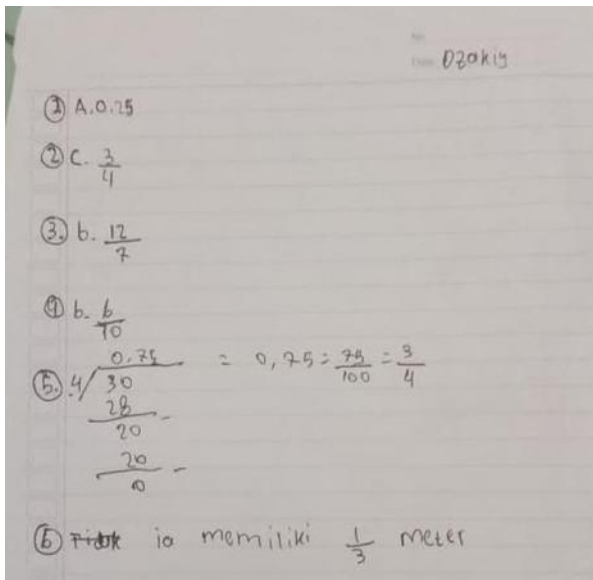 Dzakiy
① A. 0.25
② C. 3/4
③. b. 12/7
④ b. 6/10
0.75 = 0,75 = 75/100 = 3/4
⑤. 4/30
28 -
20
20 -
0
⑥ Tidak ia memiliki 1/3 meter